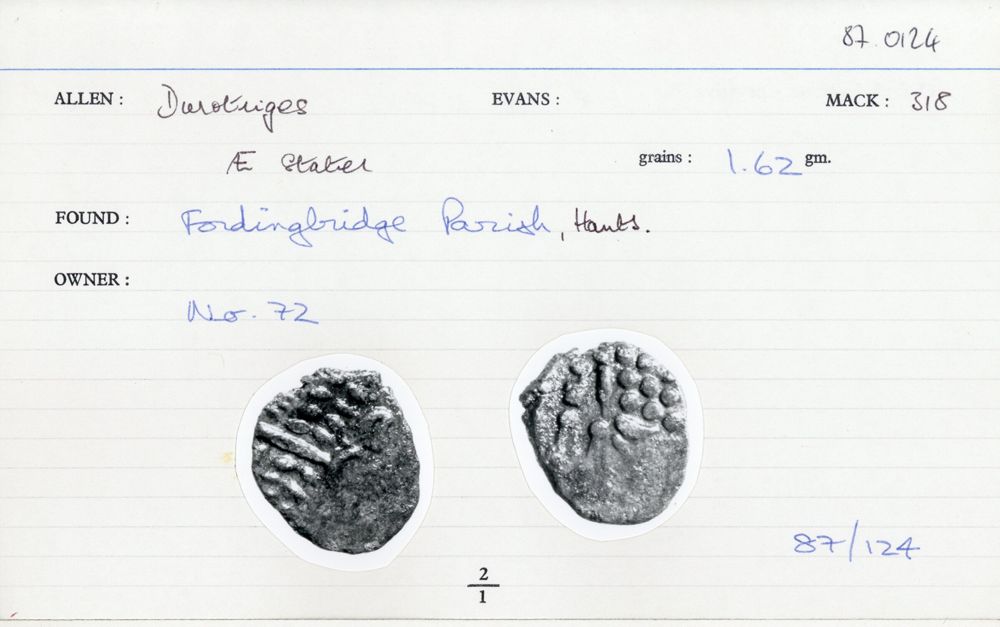 87.0124
ALLEN : Durotriges EVANS : MACK : 318
Æ Stater grains : 1.62 gm.
FOUND : Fordingbridge Parish, Hants.
OWNER :
No. 72
87/124
2
1